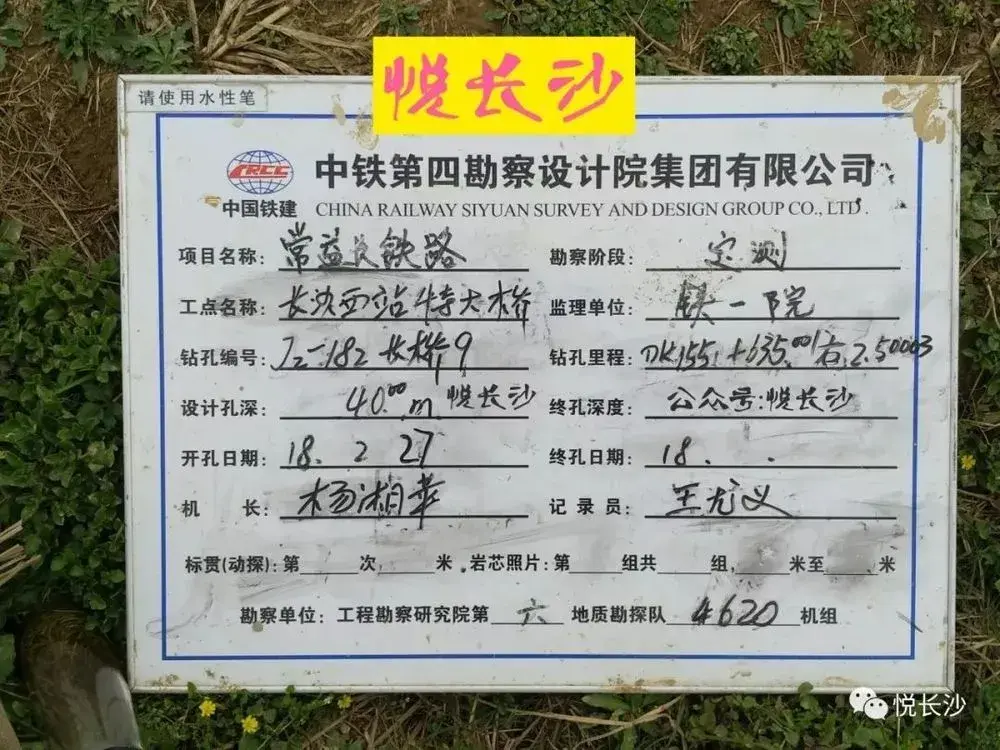 悦长沙
请使用水性笔
CRCC
中国铁建
中铁第四勘察设计院集团有限公司
CHINA RAILWAY SIYUAN SURVEY AND DESIGN GROUP CO., LTD.
项目名称: 常益长铁路 勘察阶段: 定测
工点名称: 长沈西站特大桥 监理单位: 铁一院
钻孔编号: Jz-182长桥9 钻孔里程: DK155+635.00右2.50003
设计孔深: 40.00m 悦长沙 终孔深度: 公众号:悦长沙
开孔日期: 18. 2 27 终孔日期: 18. .
机 长: 杨湘 记录员: 王龙义
标贯(动探): 第 次 米 . 岩芯照片: 第 组共 组, 米至 米
勘察单位: 工程勘察研究院第 六 地质勘探队 4620 机组
悦长沙